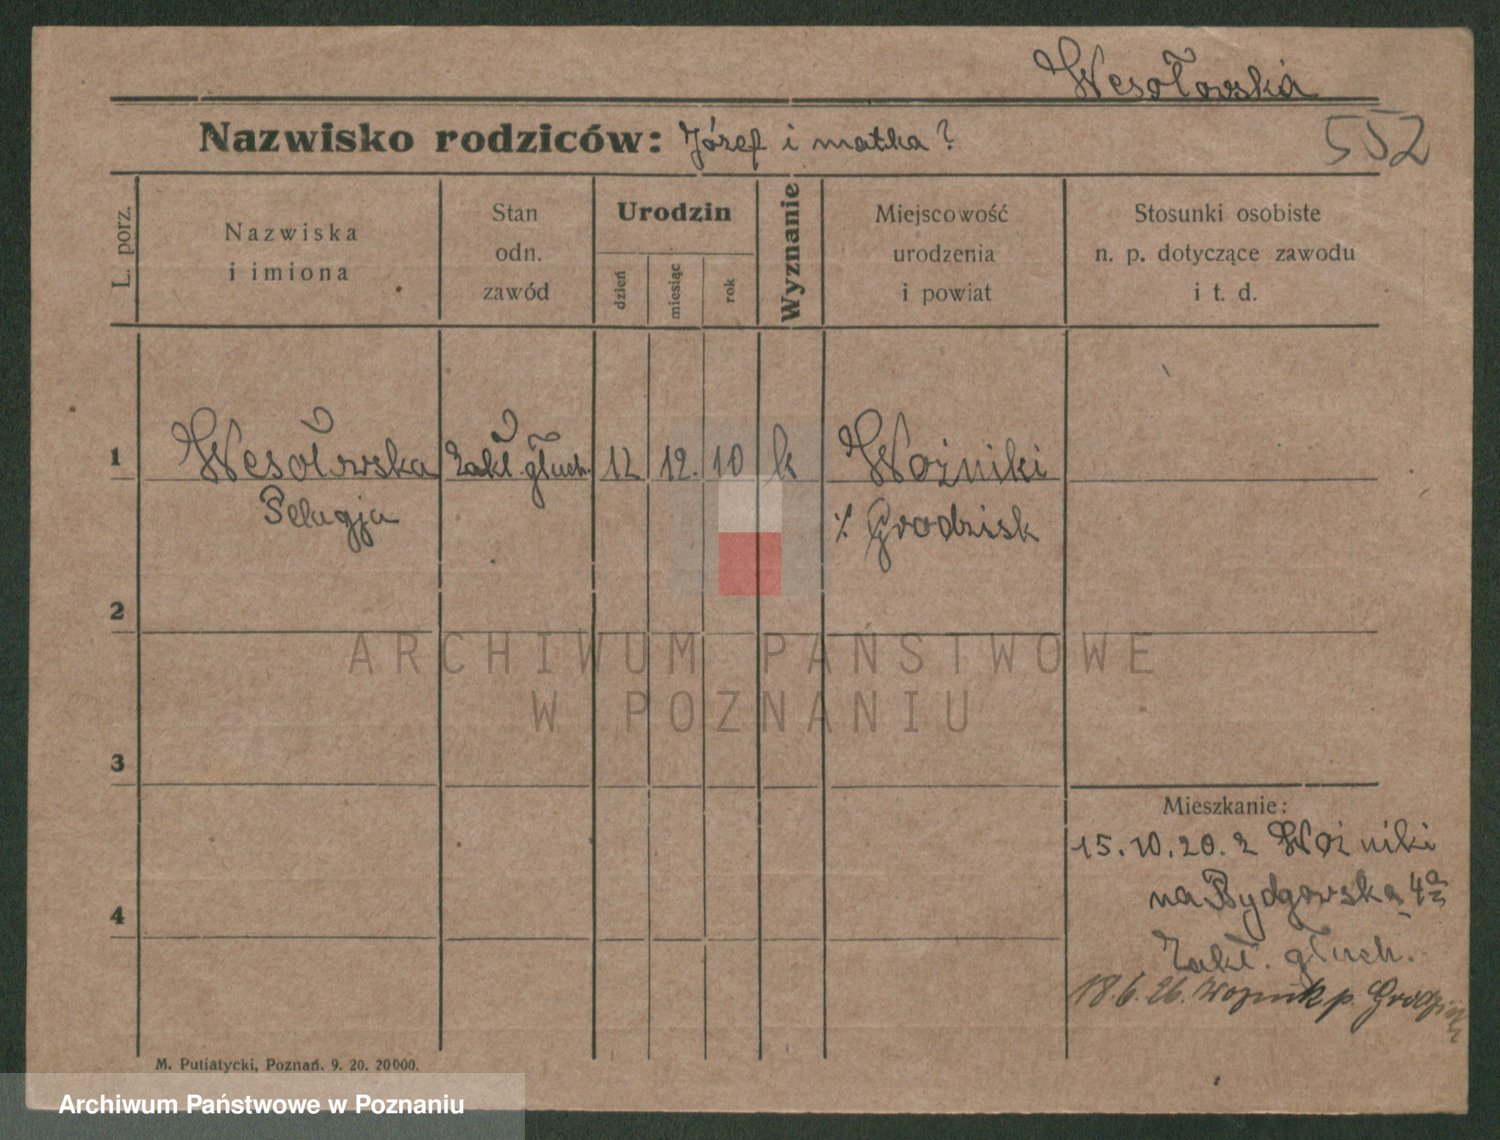 Wesołowska
Nazwisko rodziców: Józef i matka?
552
L. porz.
Nazwiska
i imiona
Stan
odn.
zawód
Urodzin
dzień
miesiąc
rok
Wyznanie
Miejscowość
urodzenia
i powiat
Stosunki osobiste
n. p. dotyczące zawodu
i t. d.
1
Wesołowska
Pelagja
Zakł. głuch.
12
12.
10
k
Woźniki
Grodzisk
2
3
4
ARCHIWUM PAŃSTWOWE
W POZNANIU
Mieszkanie:
15.10.20. z Woźniki
na Bydgowska 4a
Zakł. głuch.
18.6.26. p.
M. Putiatycki, Poznań. 9. 20. 20000.
Archiwum Państwowe w Poznaniu